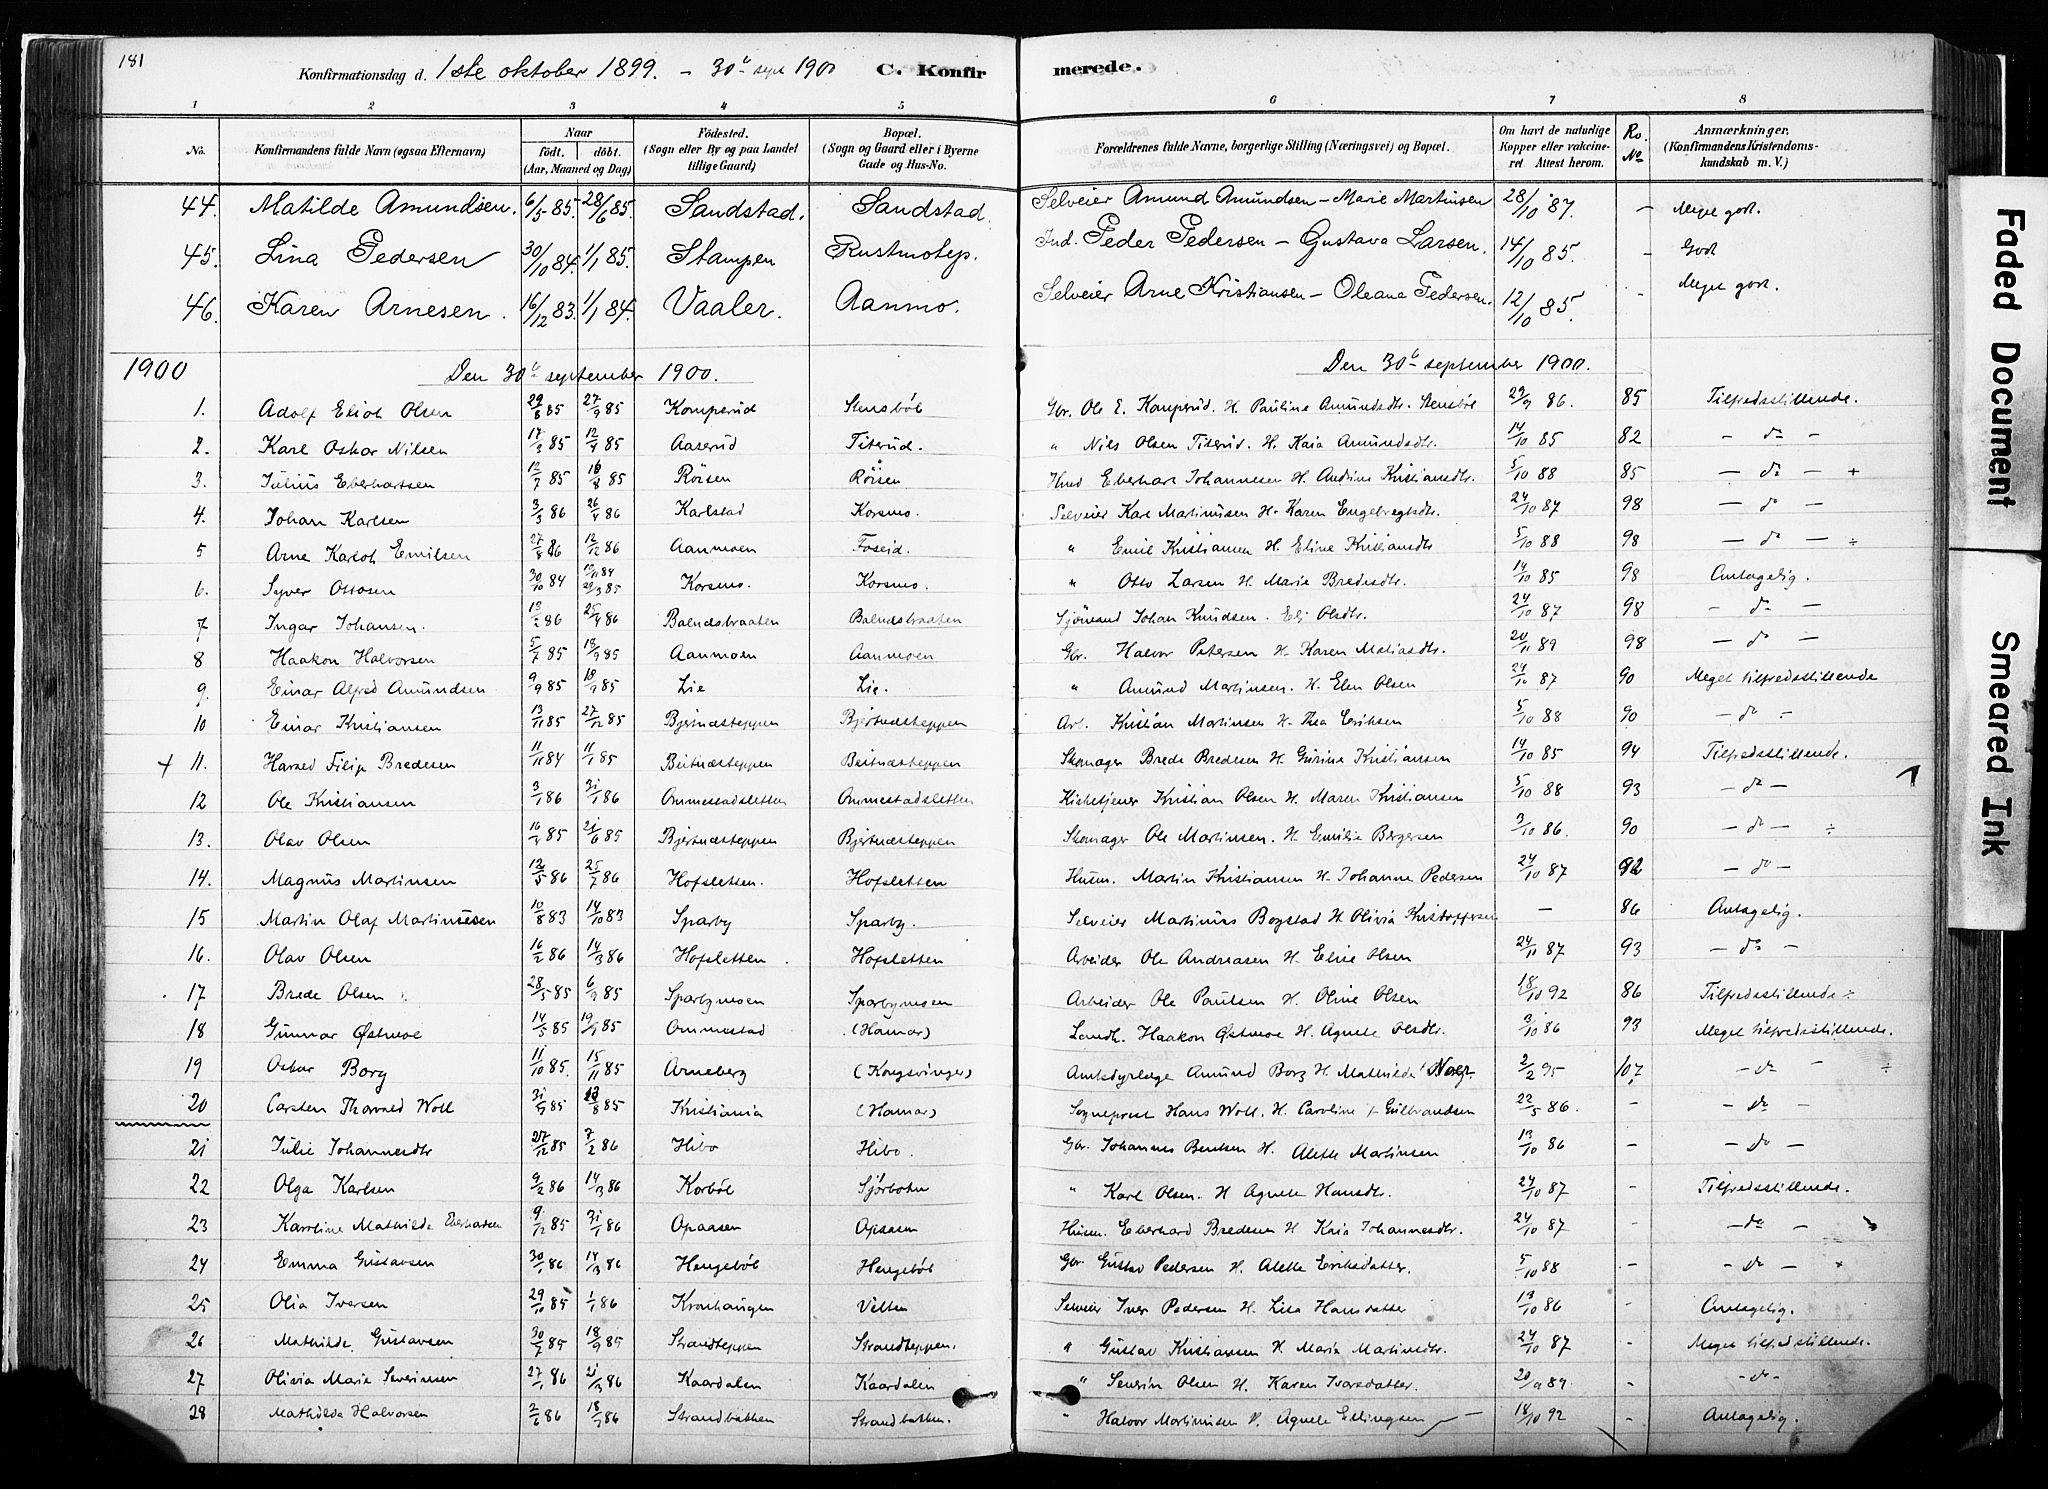 181
Konfirmationsdag d. 1ste oktober 1899. - 30te sept 1900 C. Konfirmerede.
1 2 3 4 5 6 7 8
No. Konfirmandens fulde Navn (ogsaa Efternavn) Naar født. døbt. (Aar, Maaned og Dag) Fødested. (Sogn eller By og paa Landet tillige Gaard) Bopæl. (Sogn og Gaard eller i Byerne Gade og Hus-No. Forældrenes fulde Navne, borgerlige Stilling (Næringsvei) og Bopæl. Om havt de naturlige Kopper eller vaccineret Attest herom. Ro. No Anmærkninger. (Konfirmandens Kristendomskundskab m. V.)
44. Matilde Amundsen. 6/5 85. 28/6 85. Sandstad. Sandstad. Selveier Amund Amundsen - Marie Martinsen 28/10 87. - Meget godt.
45. Lina Pedersen 30/10 84. 1/1 85. Stampen Rustmotep. Ind. Peder Pedersen - Gustava Larsen. 14/10 85. - Godt
46. Karen Arnesen. 16/12 83. 1/1 84. Vaaler. Aanmo. Selveier Arne Kristiansen - Oleane Pedersen. 12/10 85. - Meget godt.
1900 Den 30te september 1900. Den 30te september 1900.
1. Adolf Eliot Olsen 29/8 85 27/9 85 Komperud Stensböl Gbr. Ole E. Komperud. H. Pauline Amundsdtr. Stensböl 29/9 86. 85 Tilfredsstillende.
2. Karl Oskar Nilsen 17/3 85 12/4 85 Aaserud Titerud. " Nils Olsen Titerud. H. Kaia Amundsdtr. 14/10 85 82 - do -
3. Julius Eberhartsen 12/7 85 16/8 85 Röisen Röisen. Husm Eberhart Johannesen H. Andrine Kristiansdtr. 5/10 88 85 - do - +
4. Johan Karlsen 3/3 86 26/4 86 Karlstad Korsmo. Selveier Karl Martinusen H. Karen Engebregtsdtr. 24/10 87 98 - do -
5 Arne Karolt Emilsen 27/8 86 12/12 86 Aanmoen Foseid. " Emil Kristiansen H. Eline Kristiansdtr 5/10 88 98 - do - ÷
6. Syver Ottosen 30/10 84 19/11 84 29/3 85 Korsmo. Korsmo. " Otto Larsen H. Marie Bredesdtr. 14/10 85 98 Antagelig.
7 Ingar Johansen. 13/2 86 25/4 86 Balnesbraaten Balnesbraaten Sjömand Johan Knudsen. Eli Olsdtr. 24/10 87 98 - do -
8 Haakon Halvorsen 5/7 85 13/9 85 Aanmoen Aanmoen Gbr. Halvor Petersen H. Karen Matiasdtr. 20/11 89 98 - do -
9. Einar Alfred Amundsen 9/9 85 18/9 85 Lie Lie. " Amund Martinsen. H. Elen Olsen 24/10 87 90 Meget tilfredsstillende
10 Einar Kristiansen 13/11 85 27/12 85 Bjertnesteppen Bjertnesteppen Arb. Kristian Martinsen H. Thea Eriksen 5/10 88 90 - do -
+ 11. Harald Filip Bredesen 11/11 84 11/1 85 Beitnesteppen Beitnesteppen Skomager Brede Bredesen H. Gurine Kristiansen 14/10 85 94 Tilfredsstillende.
12 Ole Kristiansen 3/1 86 31/1 86 Ommestadsletten Ommestadsletten Kirketjener Kristian Olsen H. Maren Kristiansen 5/10 88 93 - do -
13. Olav Olsen 16/4 85 21/6 85 Bjertnesteppen Bjertnesteppen Skomager Ole Martinsen. H. Emilie Bergersen 3/10 86. 90 - do - ÷
14. Magnus Martinsen 12/5 86 25/7 86 Hofsletten. Hofsletten Husm. Martin Kristiansen H. Johanne Pedersen 24/10 87 92 - do -
15 Martin Olaf Martinusen 10/8 83 14/10 83 Sparby Sparby. Selveier Martinus Bogstad H. Olivia Kristoffersen - 86 Antagelig.
16. Olav Olsen 16/2 86 14/3 86 Hofsletten. Hofsletten Arbeider Ole Andreasen H. Eline Olsen 24/11 87 93 - do -
17 Brede Olsen 28/5 85 6/9 85 Sparbymoen Sparbymoen Arbeider Ole Paulsen H. Oline Olsen 18/10 92 86 Tilfredsstillende ÷
18 Gunnar Østmoe 14/5 85 19/7 85 Ommestad (Hamar) Landh. Haakon Østmoe H. Agnete Olsdtr. 3/10 86 93 Meget tilfredsstillende.
19 Oskar Borg 11/10 85. 15/11 85 Arneberg (Kongsvinger) Amtsdyrlæge Amund Borg H. Mathilde 2/2 95 107. - do - ÷
20 Carsten Thorvald Woll 31/5 85 23/8 85 Kristiania (Hamar) Sogneprest Hans Woll. H. Caroline f. Gulbrandsen 22/5 86. - - do -
21 Julie Johannesdtr 27/12 85 7/2 86 Hibo Hibo. Gbr. Johannes Bentsen H. Alette Martinsen 13/10 86 - - do -
22 Olga Karlsen 9/2 86 14/3 86 Korböl Sjörbotn " Karl Olsen. H Agnete Hansdtr. 24/10 87 - Tilfredsstillende.
23 Karoline Mathilde Eberhardsen 9/12 85 31/1 86 Opaasen Opaasen Husm. Eberhard Bredesen H Kaia Johannesdtr. 24/10 87 - - do -
24 Emma Gustavsen 30/1 86 14/3 86 Hengeböl Hengeböl Gbr. Gustav Pedersen H. Alette Eriksdatter. 5/10 88 - - do - +
25 Olia Iversen 29/10 85 1/1 86 Kronhaugen Velten Selveier Iver Pedersen H. Lisa Hansdatter 13/10 86 - Antagelig.
26 Mathilde Gustavsen 30/7 85 18/9 85 Strandteppen Strandteppen. " Gustav Kristiansen H. Maria Martinsdtr. 24/10 87 - Meget tilfredsstillende.
27 Olivia Marie Severinsen 27/1 86 21/3 86 Kaardalen Kaardalen " Severin Olsen H. Karen Ivarsdatter. 20/11 89. - - do -
28 Mathilda Halvorsen 2/6 86 18/7 86 Strandbakken Strandbakken. " Halvor Martinusen H. Agnete Ellingsen - 18/10 92 - Antagelig.
Faded Document
Smeared Ink